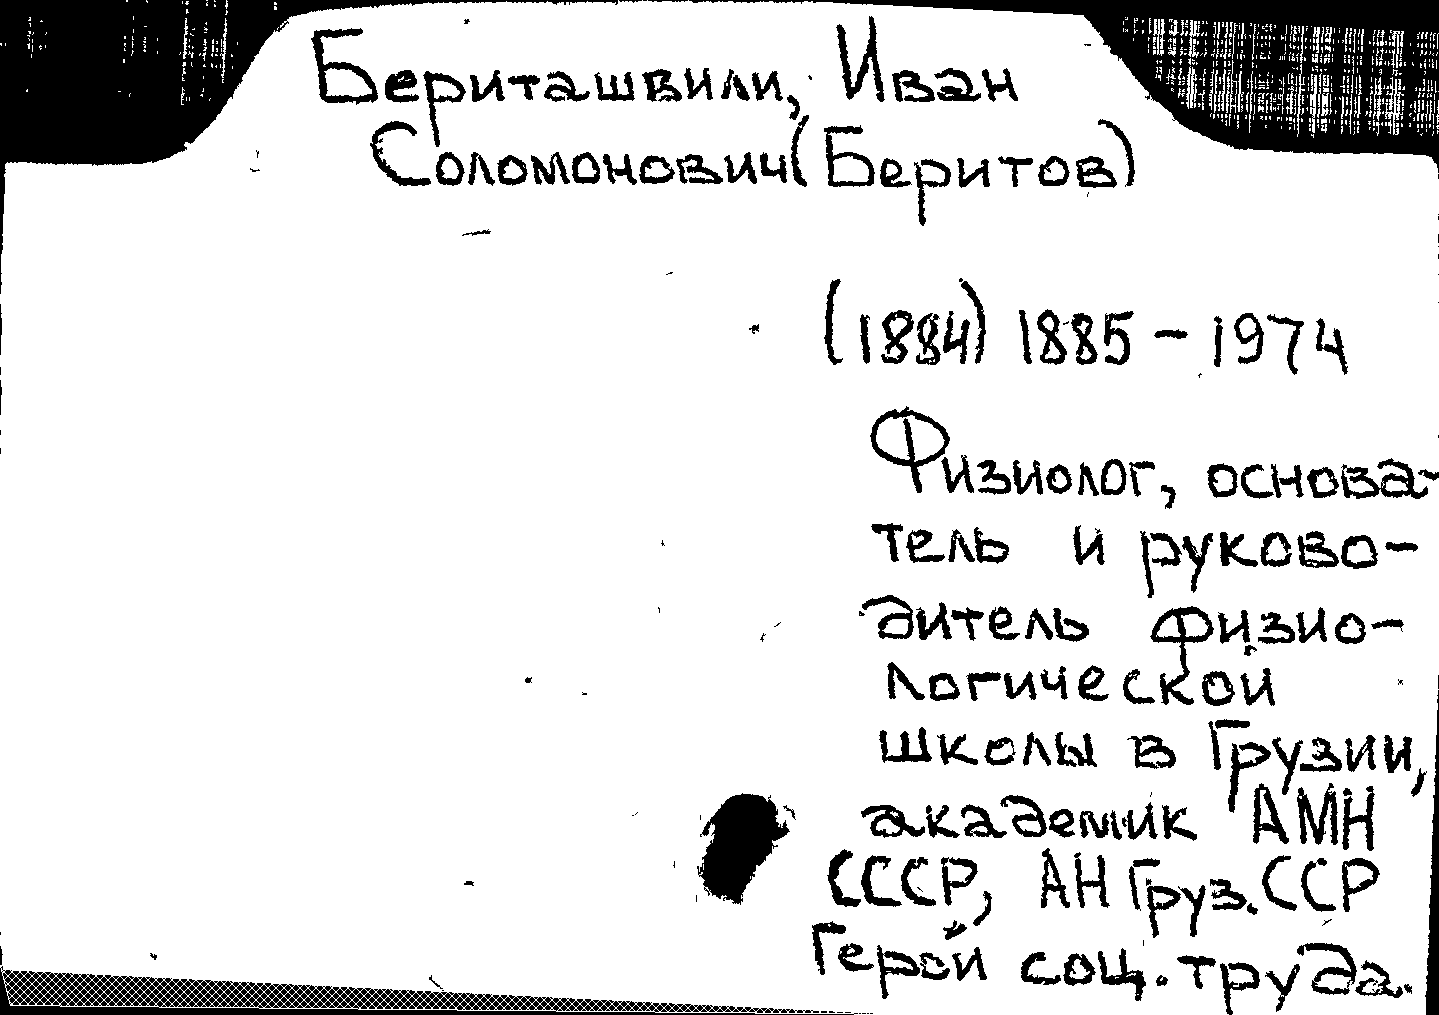 Бериташвили, Иван
Соломонович (Беритов)
(1884) 1885 - 1974
Физиолог, основа-
тель и руково-
дитель физио-
логической
школы в Грузии,
академик АМН
СССР, АН Груз. ССР
Герой соц. труда.